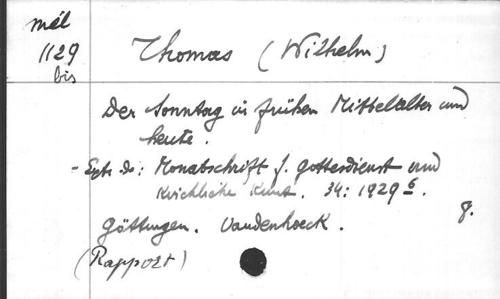 mél
1129
bis
Thomas (Wilhelm)
Der Sonntag in frühen Mittelalter und
heute.
- Extr. ds: Monatschrift f. Gottesdienst und
Kirchliche Kunst. 34: 1929 6.
Göttingen. Vandenhoeck. 8.
(Rapport)